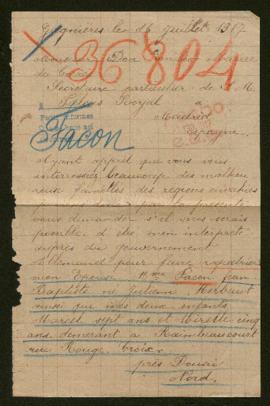 le 16 juillet 1917
36804
Monsieur
Secrétaire particulier de S. M.
Royal
Madrid
Espagne
Facon
Ayant appris que vous vous
intéressez beaucoup des malheu
reuses familles des régions envahies
vous demander s'il vous serais
possible d'etre mon interprete
auprès du gouvernement
Allemand pour faire rapatrier
mon Epouse Mme Facon Jean
Baptiste né Julienne
ainsi que mes deux enfants
Marcel sept ans et Mireille cinq
ans demeurant a Raimbeaucourt
rue Rouge Croix
près Douai
Nord.